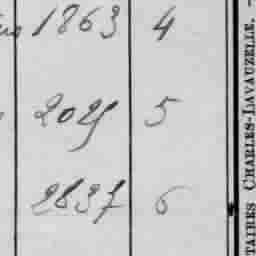 1863 4
2025 5
2837 6
TAIRES CHARLES-LAVAUZELLE. —